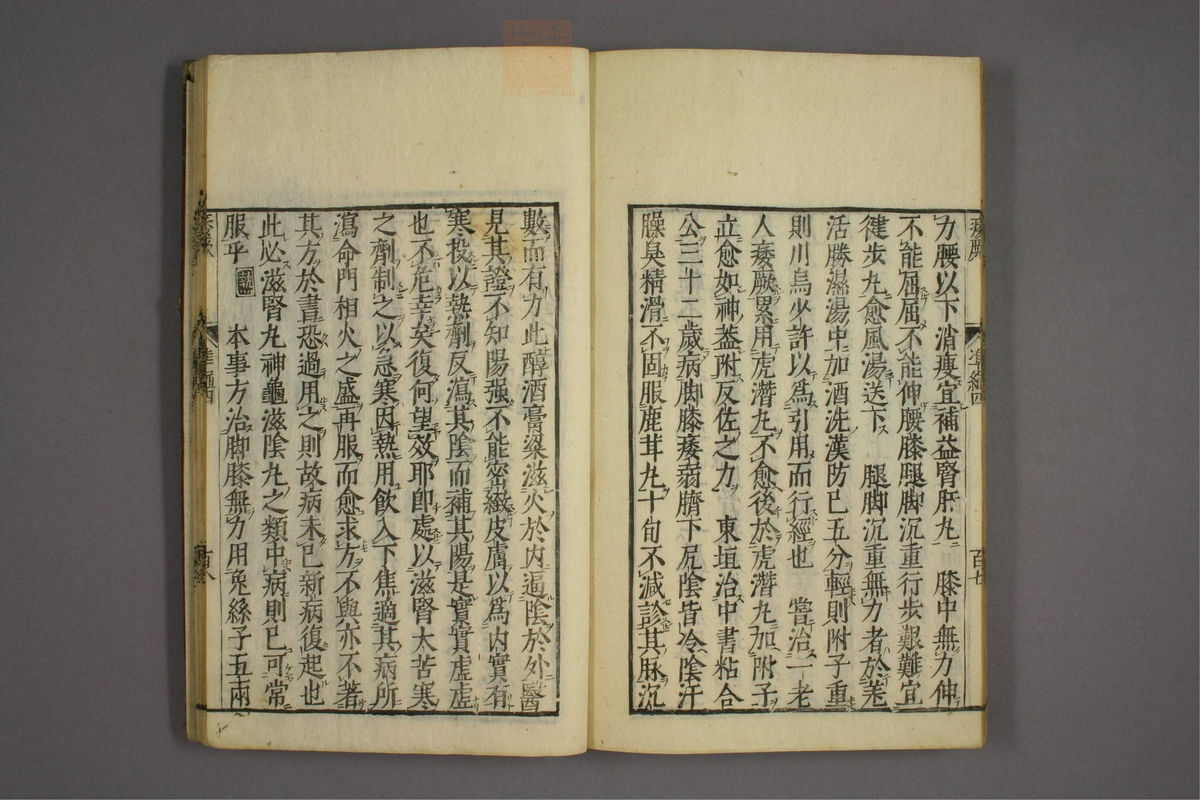 力腰以下消瘦宜補益腎肝丸　膝中無力伸
不能屈屈不能伸腰膝腿脚沉重行歩艱難宜
健歩丸愈風湯送下　腿脚沉重無力者於羗
活勝濕湯中加酒洗漢防已五分輕則附子重
則川烏少許以爲引用而行經也　嘗治一老
人痿厥累用虎潛丸不愈後於虎潛丸加附子
立愈如神蓋附反佐之力　東垣治中書粘合
公三十二歳病脚膝痿弱臍下尻陰皆冷陰汗
臊臭精滑不固服鹿茸丸十旬不減診其脉沉
數而有力此醇酒膏粱滋火於内逼陰於外醫
見其證不知陽强不能密緻皮膚以爲内實有
寒投以熱劑反瀉其陰而補其陽是實實虛虛
也不危幸矣復何望效耶卽處以滋腎大苦寒
之劑制之以急寒因熱用飮入下焦適其病所
瀉命門相火之盛再服而愈求方不與亦不著
其方於書恐過用之則故病未已新病復起也
此必滋腎丸神龜滋陰丸之類中病則已可常
服乎　本事方治脚膝無力用兔絲子五兩
痿厥
準繩四